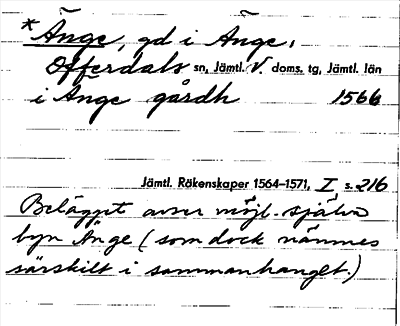 *Änge, gd i Änge,
Offerdals sn, Jämtl. V. doms. tg, Jämtl. län
i Ange gårdh 1566
Jämtl. Räkenskaper 1564-1571, I s. 216
Belägget avser möjl. själva
byn Änge (som dock nämnes
särskilt i sammanhanget.)